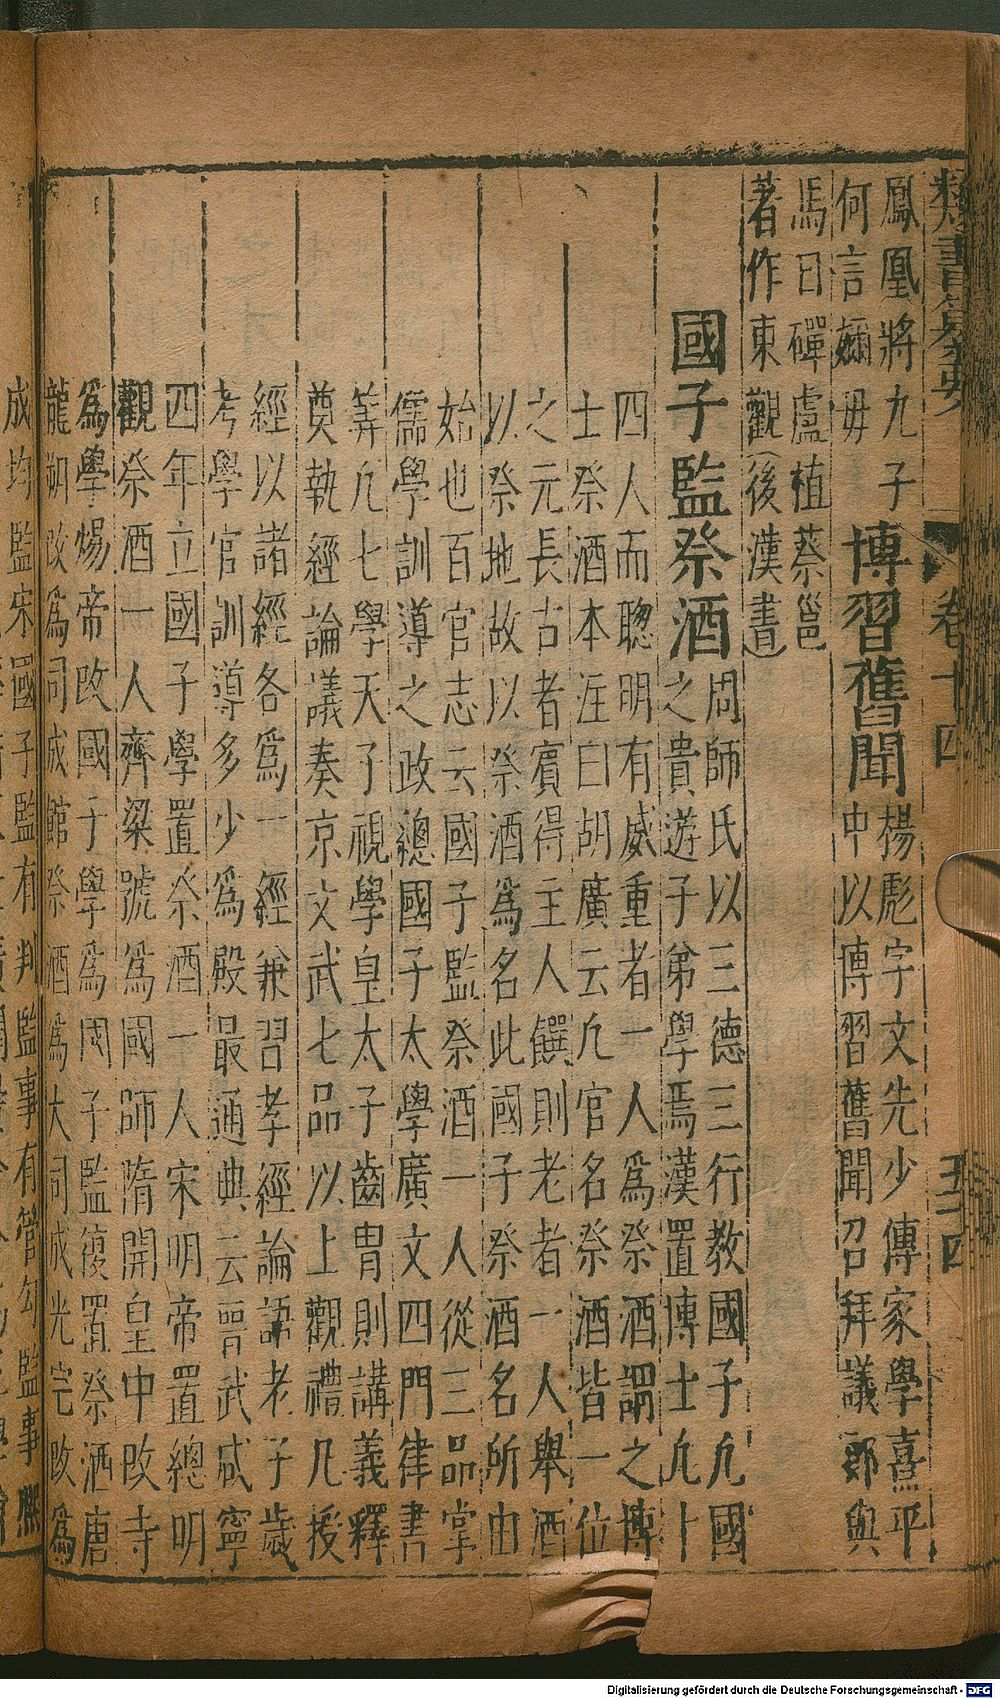 類書纂要 卷十四 五四
鳳凰將九子 博習舊聞 楊彪字文先少傳家學熹平
何言嬭毋 中以博習舊聞召拜議郎與
馬日磾盧植蔡邕
著作東觀(後漢書)
國子監祭酒 周師氏以三德三行教國子凡國
之貴遊子弟學焉漢置博士凡十
四人而聰明有威重者一人爲祭酒謂之博
士祭酒本注曰胡廣云凡官名祭酒皆一位
之元長古者賓得主人饌則老者一人舉酒
以祭地故以祭酒爲名此國子祭酒名所由
始也百官志云國子監祭酒一人從三品掌
儒學訓導之政總國子太學廣文四門律書
筭凡七學天子視學皇太子齒冑則講義釋
奠執經論議奏京文武七品以上觀禮凡授
經以諸經各爲一經兼習孝經論語老子歲
考學官訓導多少爲殿最通典云晉武咸寧
四年立國子學置祭酒一人宋明帝置總明
觀祭酒一人齊梁號爲國師隋開皇中改寺
爲學煬帝改國子學爲國子監復置祭酒唐
龍朔改爲司成館祭酒爲大司成光宅改爲
成均監宋國子監有判監事有管勾監事熙
Digitalisierung gefördert durch die Deutsche Forschungsgemeinschaft - DFG